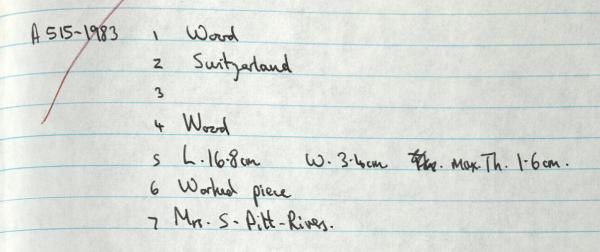 A 515-1983 1 Wood
2 Switzerland
3
4 Wood
5 L. 16.8cm W. 3.4cm max. Th. 1.6cm.
6 Worked piece
7 Mrs. S. Pitt-Rivers.